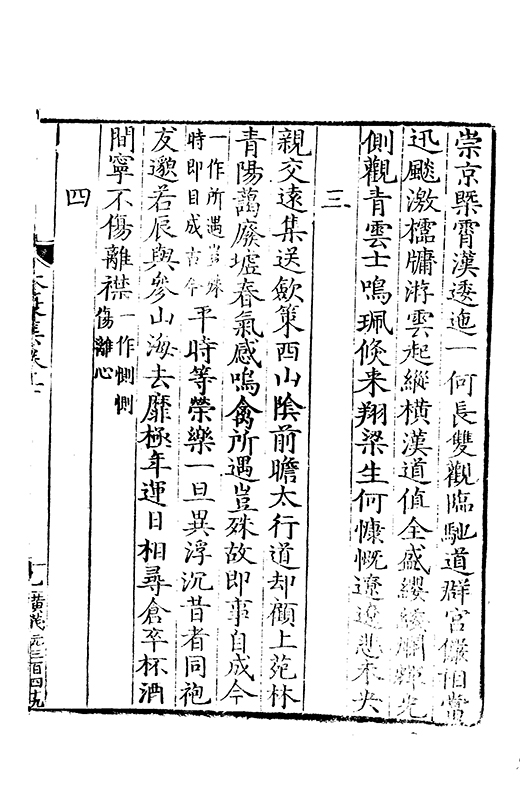 崇京槩霄漢逶迤一何長雙觀臨馳道群宮儼相當
迅飈激櫺牖游雲起縱横漢道值全盛纓緌爛輝光
側觀青雲士鳴珮倐来翔梁生何慷慨遼遼悲未央
三
親交遠集送歛策西山陰前瞻太行道却顧上苑林
青陽藹廢墟春氣感鳴禽所遇豈殊故即事自成今
一作所遇豈殊
時即目成古今
平時等榮樂一旦異浮沉昔者同袍
友邈若辰與參山海去靡極年運日相尋倉卒杯酒
間寧不傷離襟
一作惻惻
傷離心
四
十九
黄𤦺元三百四十九